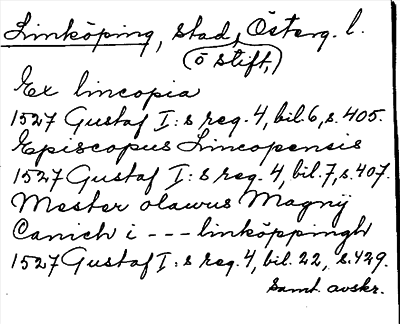 Linköping, stad, Österg. l.
(o stift,)
Ex lincopia
1527 Gustaf I:s reg. 4, bil. 6, s. 405.
Episcopus Lincopensis
1527 Gustaf I:s reg. 4, bil. 7, s. 407.
Mester olawus Magnij
Canick i --- linköppingh
1527 Gustaf I:s reg. 4, bil. 22, s. 429.
Samt. avskr.